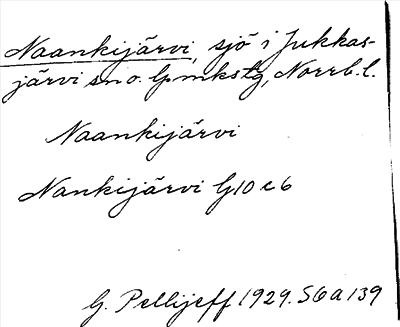 Naankijärvi, sjö i Jukkas-
järvi sn o. lpmkstg, Norrb. l.
Naankijärvi
Nankijärvi G10 e6
G. Pellijeff 1929. S6a 139